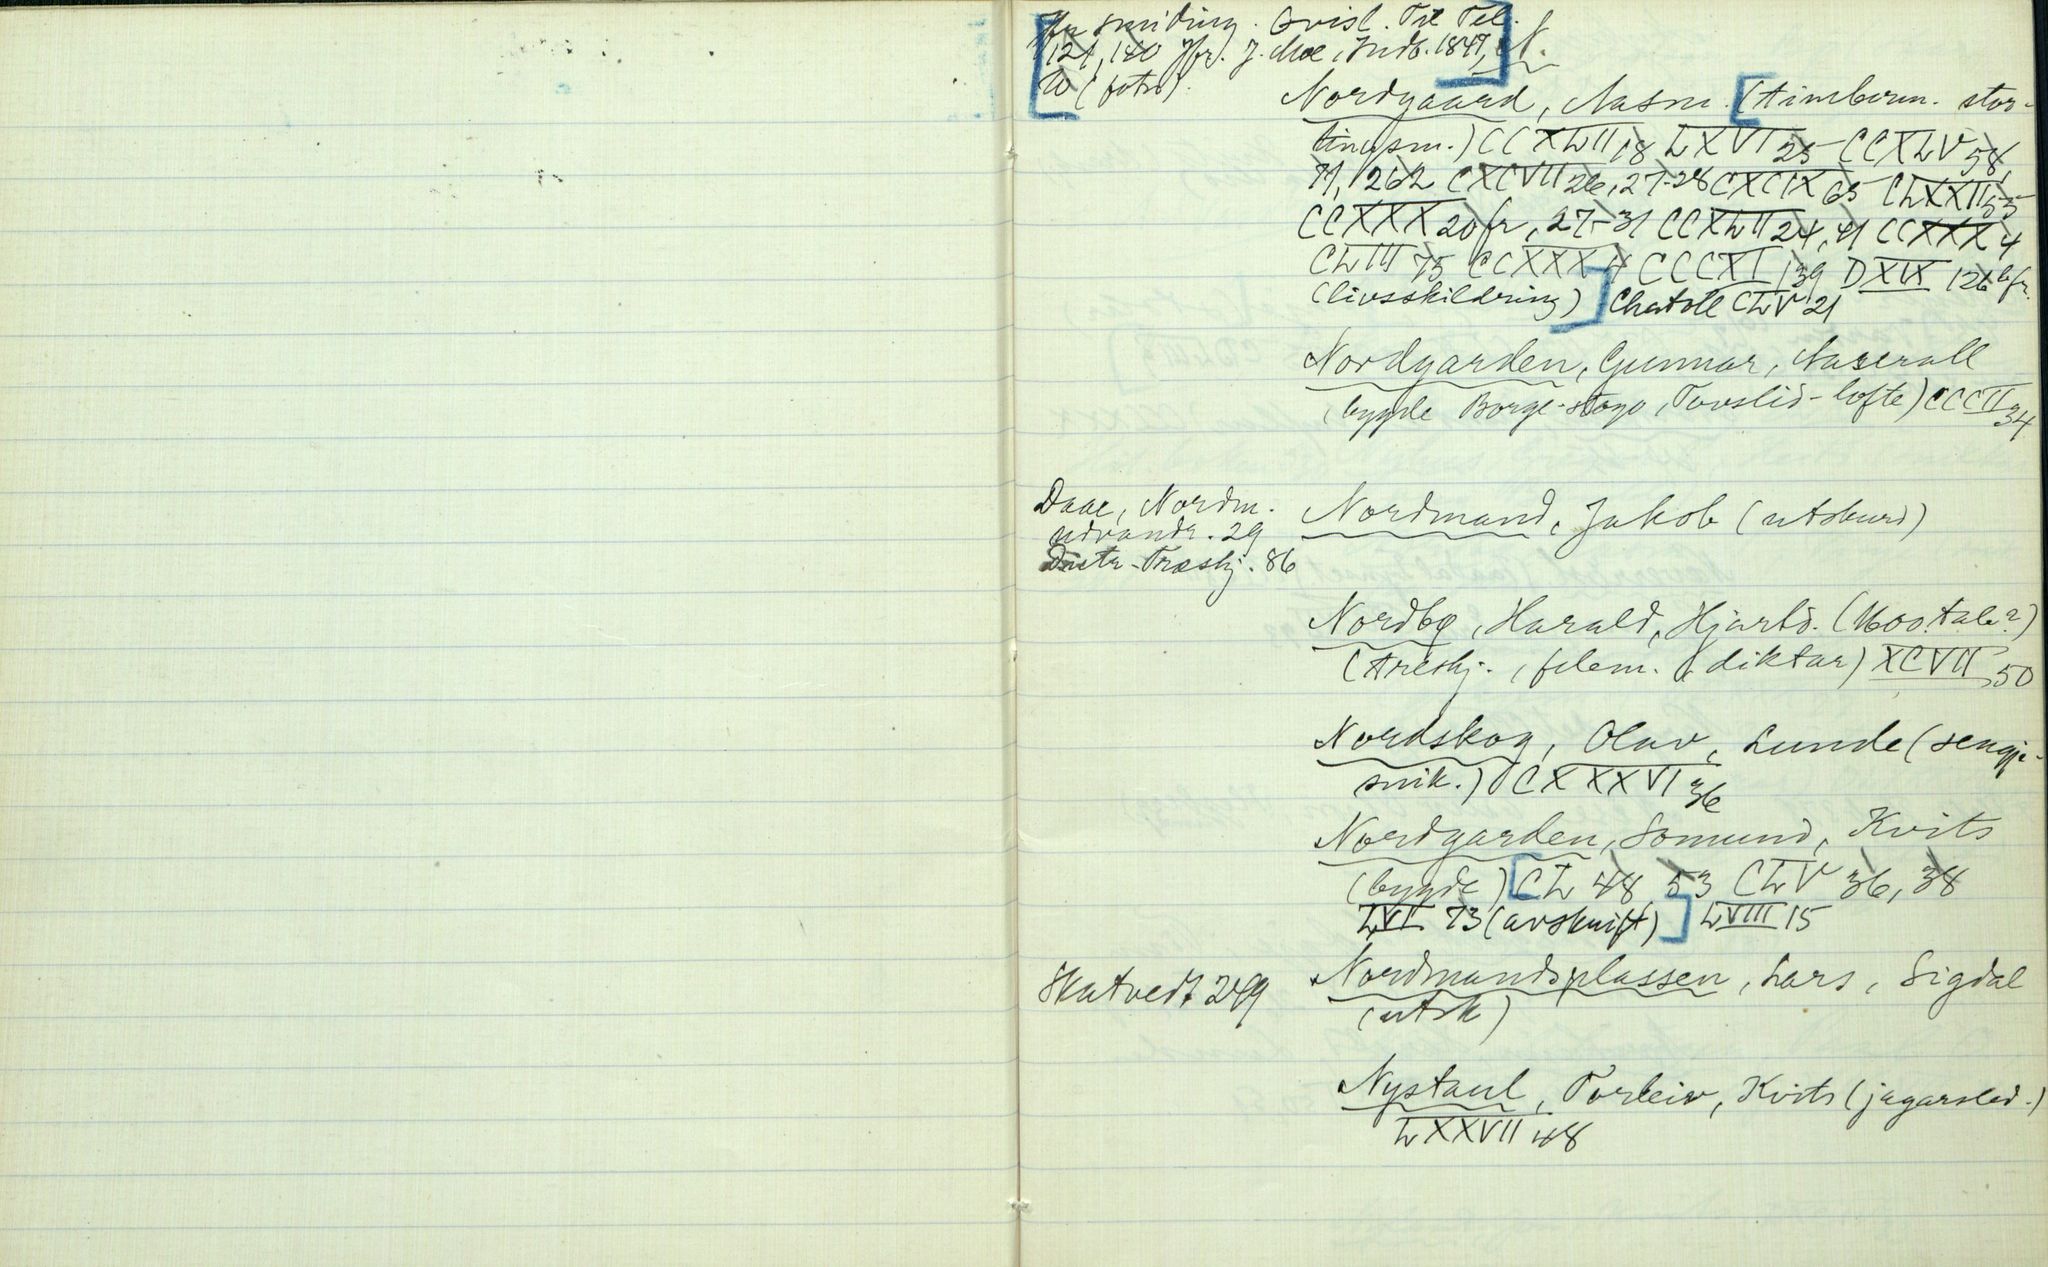 smiding. Qvisl. Tre Tel.
121, 140 Jfr. J. Moe, Indb. 1847,
10 (fotn).
N.
Nordgaard, Aasm. (timberm. stor-
tingsm.) CCXLII 18 LXVI 25 CCXLV 58,
71, 262 CXCVII 26, 27-28 CXCIX 65 CLXXII 55
CCXXX 20 fr, 27-31 CCXLII 24, 41 CCXXX 4
CLIII 75 CCXXX 4 CCCXI 139 DXIX 126 bfr.
(livsskildring) Chatoll CLV 21
Nordgarden, Gunnar, Aaserall
(bygde Borge-stogo, Tovslid-lofte) CCCII 34
Daae, Nordm.
udvandr. 29
Dietr-Træskj. 86
Nordmand, Jakob (utskurd)
Nordbø, Harald, Hjartd. (600. tal?)
(treskj., felem. diktar) XCVII 50
Nordskog, Olav, Lunde (sengje-
smik.) CXXXVI 36
Nordgarden, Somund, Kvits
(bygde) CL 48 53 CLV 36, 38
LVI 73 (avskrift) LVIII 15
Skatvedt 249
Nordmandsplassen, Lars, Sigdal
(utsk)
Nystaul, Torleiv, Kvits (jagarsled.)
LXXVII 48